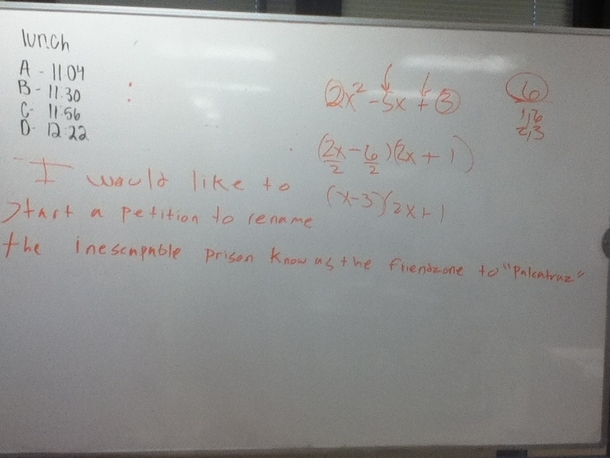 lunch
A - 11:04
B - 11:30
C - 11:56
D - 12:22
:
2x² - 5x + 3
6
1,6
2,3
(2x - 6)(2x + 1)
2 2
(x-3)(2x+1
I would like to
start a petition to rename
the inescapable prison know as the friendzone to "Palcatraz"